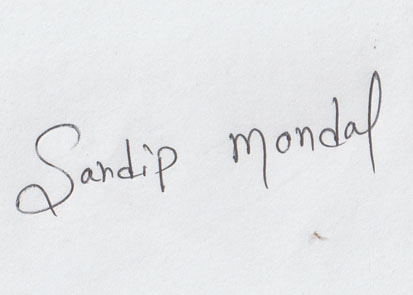 Sandip Mondal